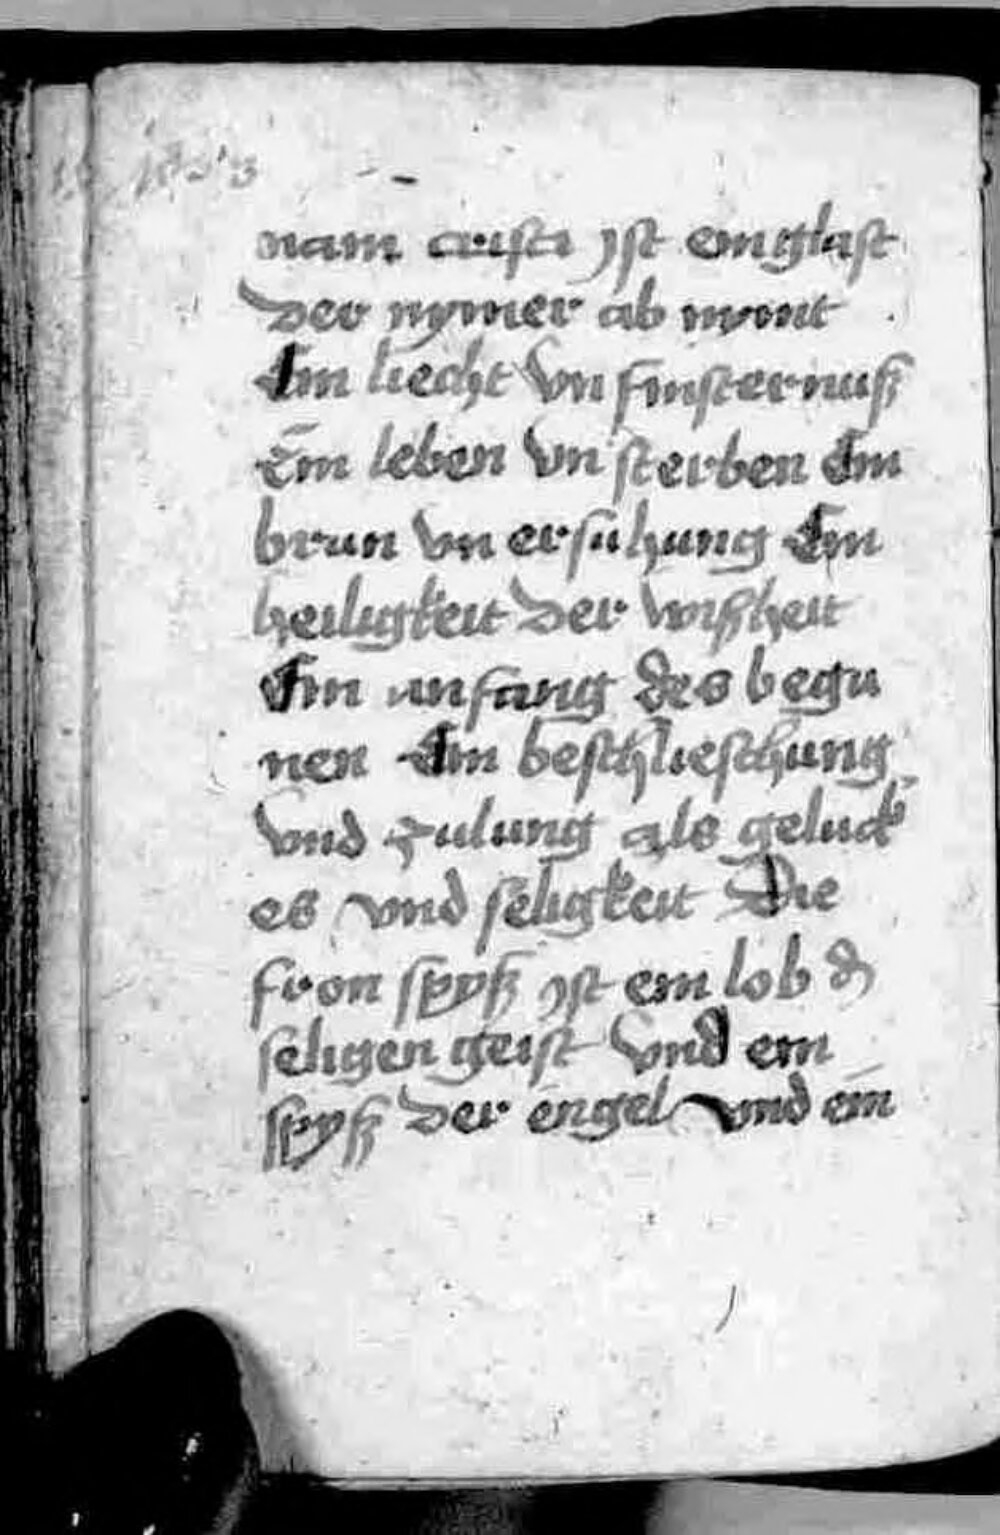 nam cristi jst ein glast
Der nymer ab nymt
Ein liecht vn finsternuß
Ein leben vn sterben Ein
brun vn ersuhung Ein
heiligkeit Der wißheit
Ein anfang des begu
nen Ein beschlieschung
vnd zulung als geluck
es vnd seligkeit Die
fron spyß jst ein lob d
seligen geist vnd ein
spyß Der engel vnd ein